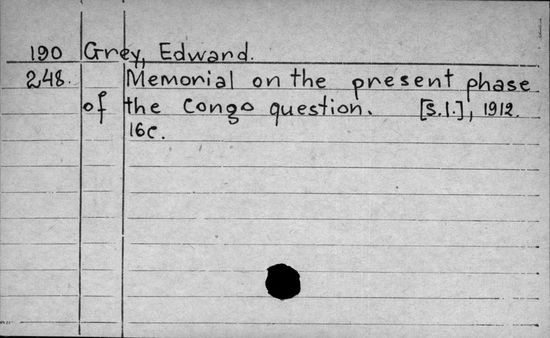 190 Grey, Edward.
248. Memorial on the present phase
of the Congo question. [S.l.], 1912.
16c.